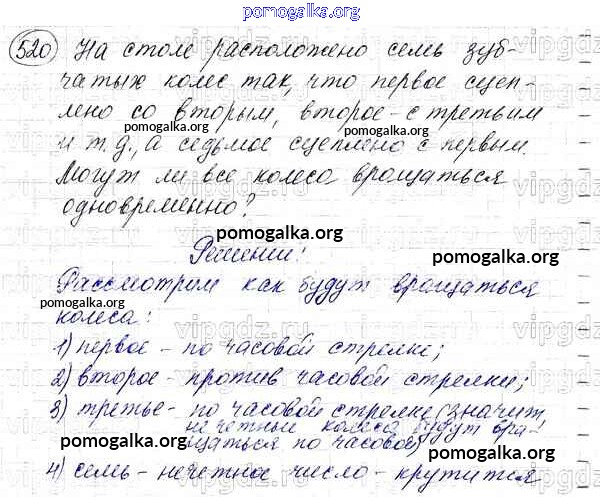 pomogalka.org
520 На столе расположено семь зуб-
чатых колес так, что первое сцеп-
лено со вторым, второе - с третьим
и т.д., а седьмое сцеплено с первым.
Могут ли все колеса вращаться
одновременно?
pomogalka.org
Решение:
Рассмотрим как будут вращаться
колеса:
1) первое - по часовой стрелке;
2) второе - против часовой стрелки;
3) третье - по часовой стрелке (значит
нечетные колеса будут вра-
щаться по часовой)
4) семь - нечетное число - крутится